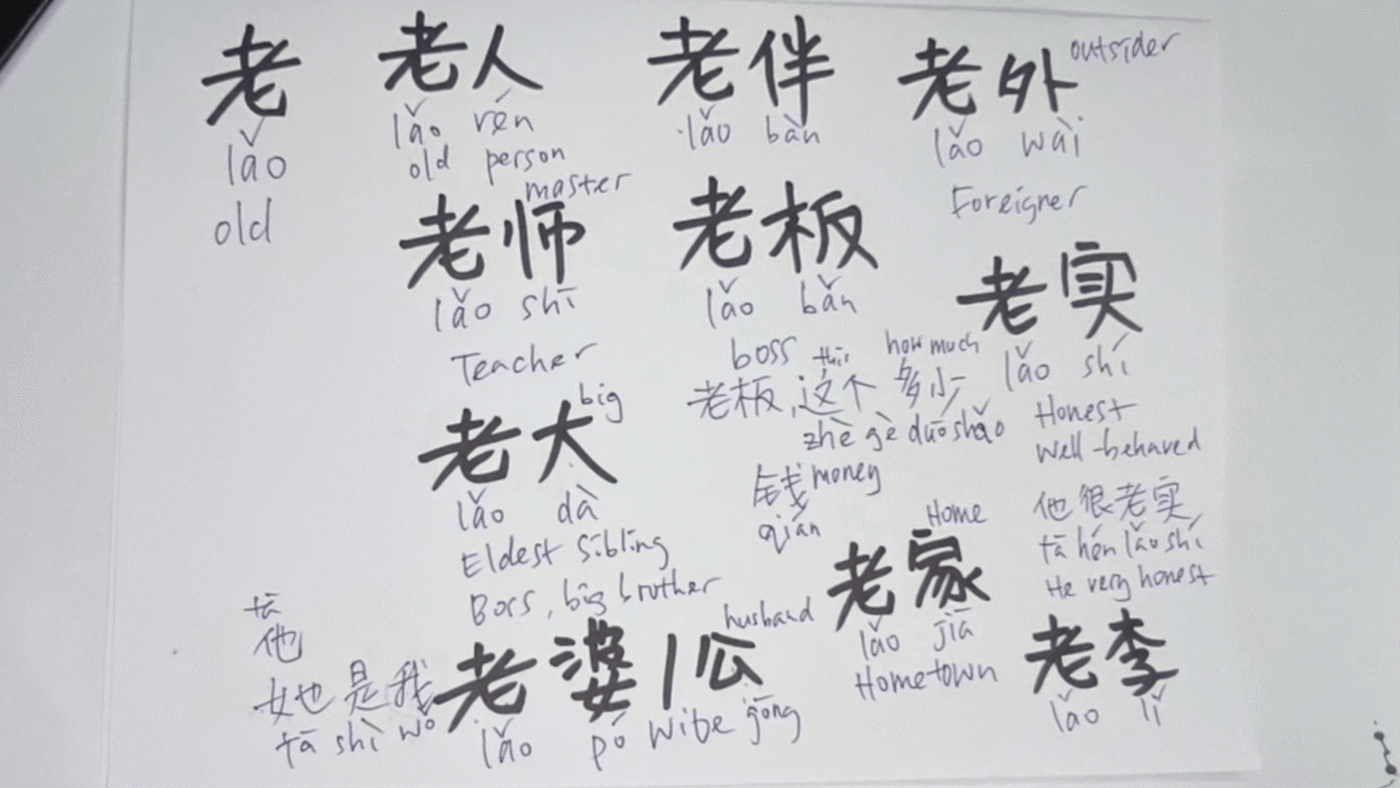 老
lǎo
old
老人
lǎo rén
old person
老师 master
lǎo shī
Teacher
老大 big
lǎo dà
Eldest sibling
Boss, big brother
tā
他
她是我
tā shì wǒ
老婆/公 husband
lǎo pó wife gōng
老伴
lǎo bàn
老板
lǎo bǎn
boss this how much
老板,这个多少
zhè gè duō shǎo
钱 money
qián
Home
老家
lǎo jiā
Hometown
老外 outsider
lǎo wài
Foreigner
老实
lǎo shí
Honest
Well-behaved
他很老实
tā hén lǎo shí
He very honest
老李
lǎo lǐ